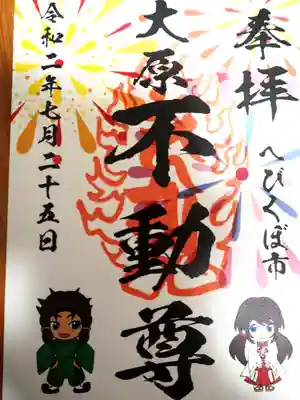 奉拝
へびくぼ市
大原不動尊
令和二年七月二十五日